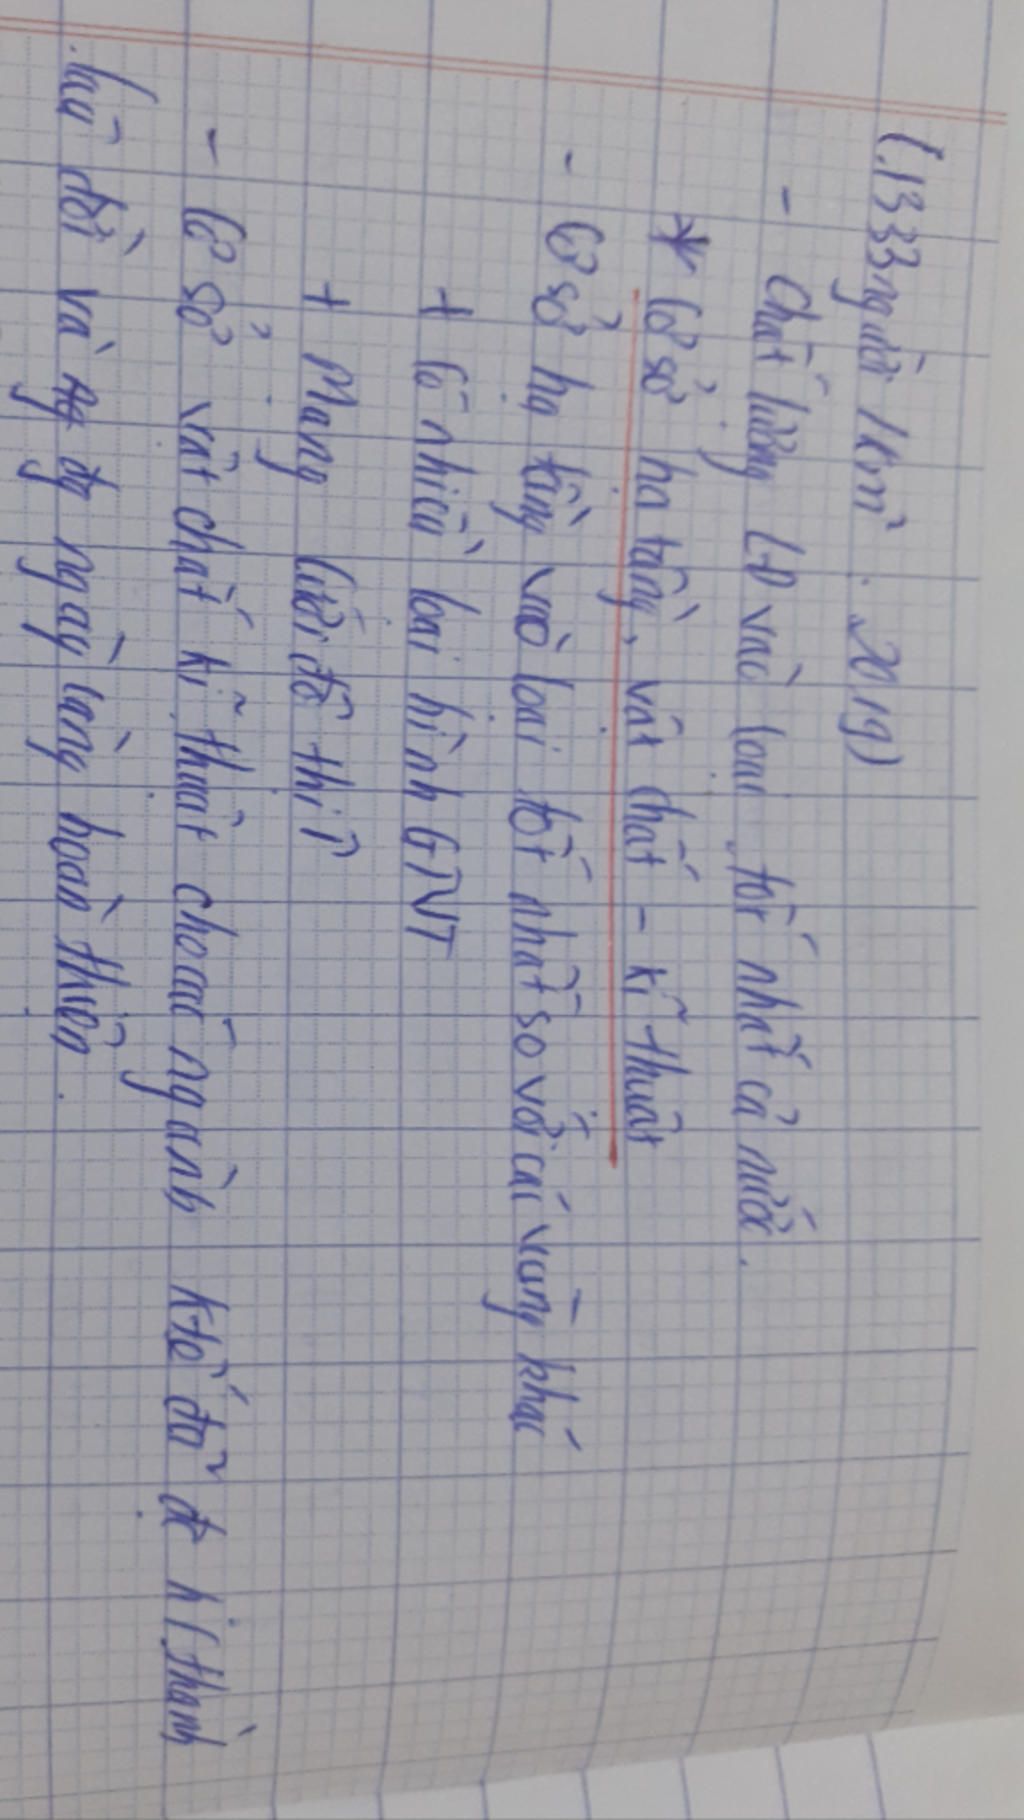 (1333 người /km². 2019)
- Chất lượng LĐ vào loại tốt nhất cả nước.
* Cơ sở hạ tầng, vật chất - kĩ thuật
- Cơ sở hạ tầng vào loại tốt nhất so với các vùng khác
+ Có nhiều loại hình GTVT
+ Mạng lưới đô thị
- Cơ sở vật chất kĩ thuật cho các ngành ktế đã đc hình thành
lâu đời và đg ngày càng hoàn thiện.